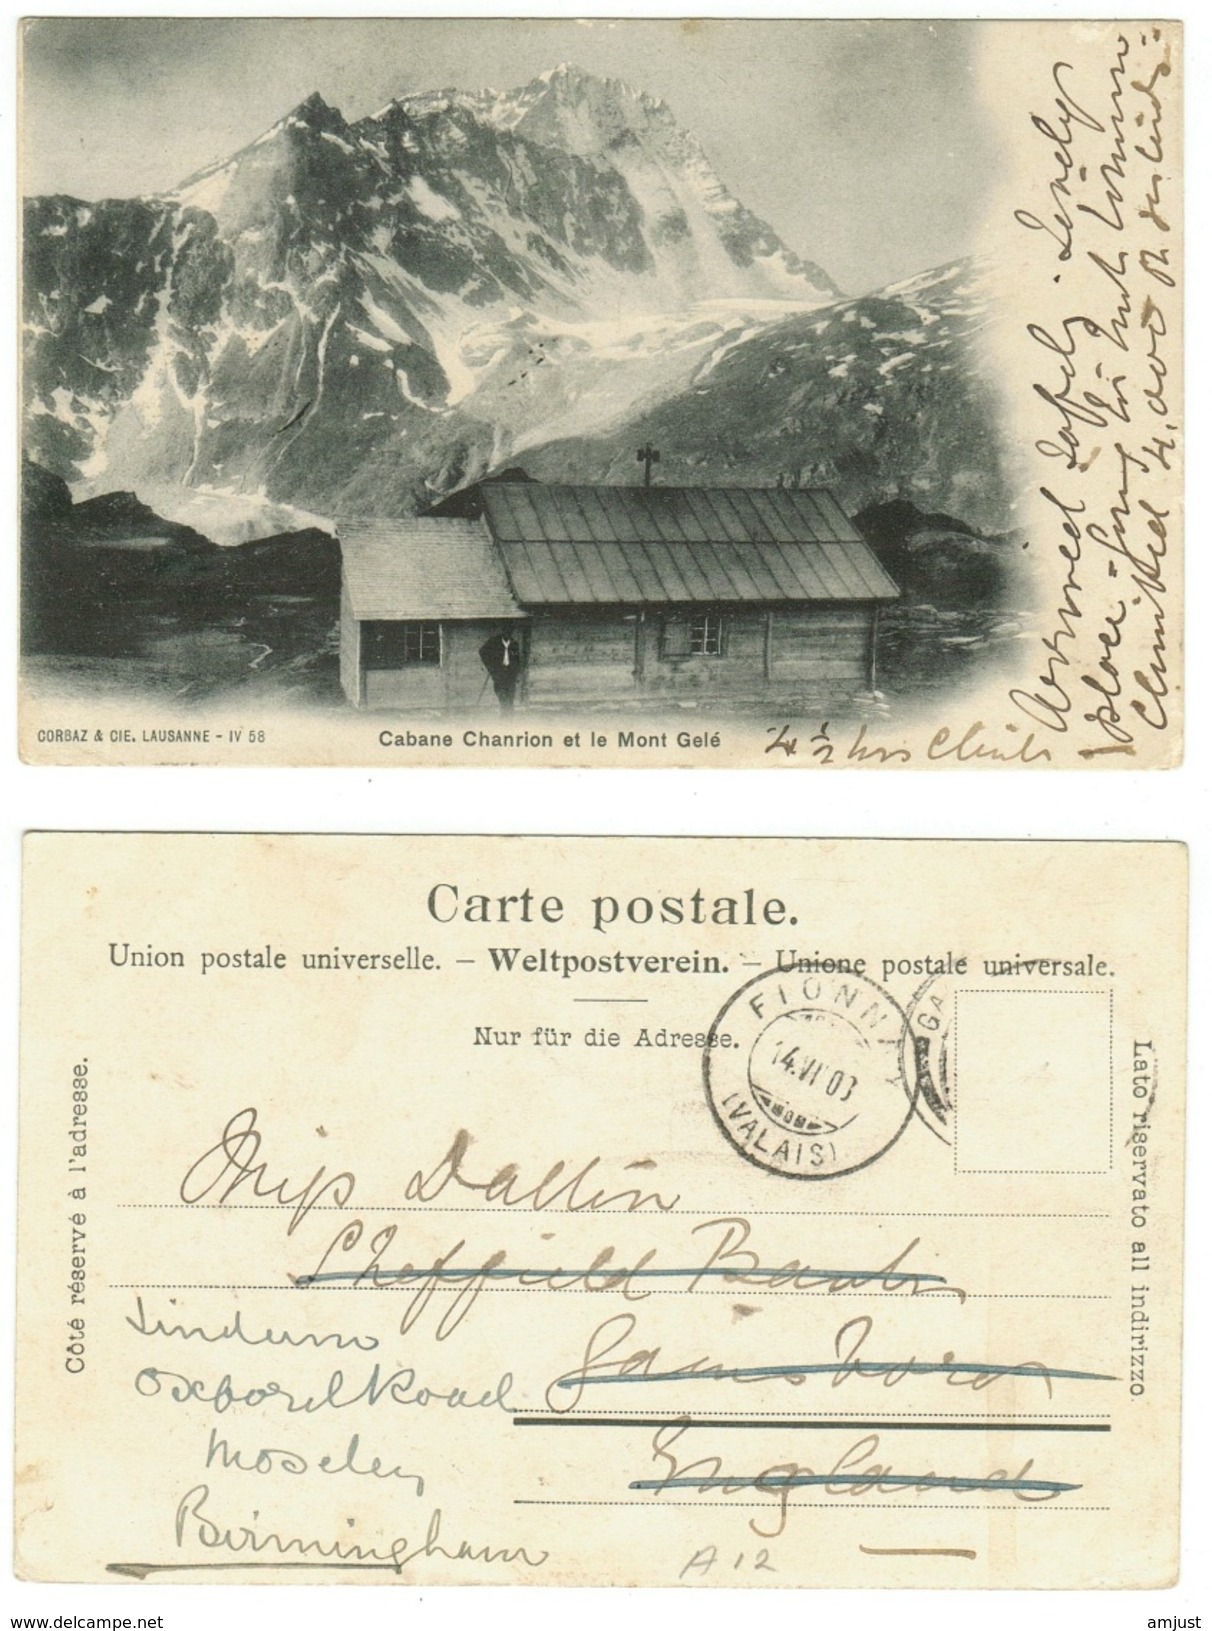 Arrived safely. Lovely
place – going to hut tomorrow
Climbed 4,000 ft. on
4 ½ hrs Climb
CORBAZ & CIE. LAUSANNE - IV 58
Cabane Chanrion et le Mont Gelé
Carte postale.
Union postale universelle. — Weltpostverein. — Unione postale universale.
Nur für die Adresse.
FIONNAY
14.VII 03
(VALAIS)
GA
Côté réservé à l'adresse.
Lato riservato all indirizzo.
Miss Dallin
Sheffield Bank
Gainsboro
England
Lindum
Oxford Road
Moseley
Birmingham
A12
delcampe.net
amjust